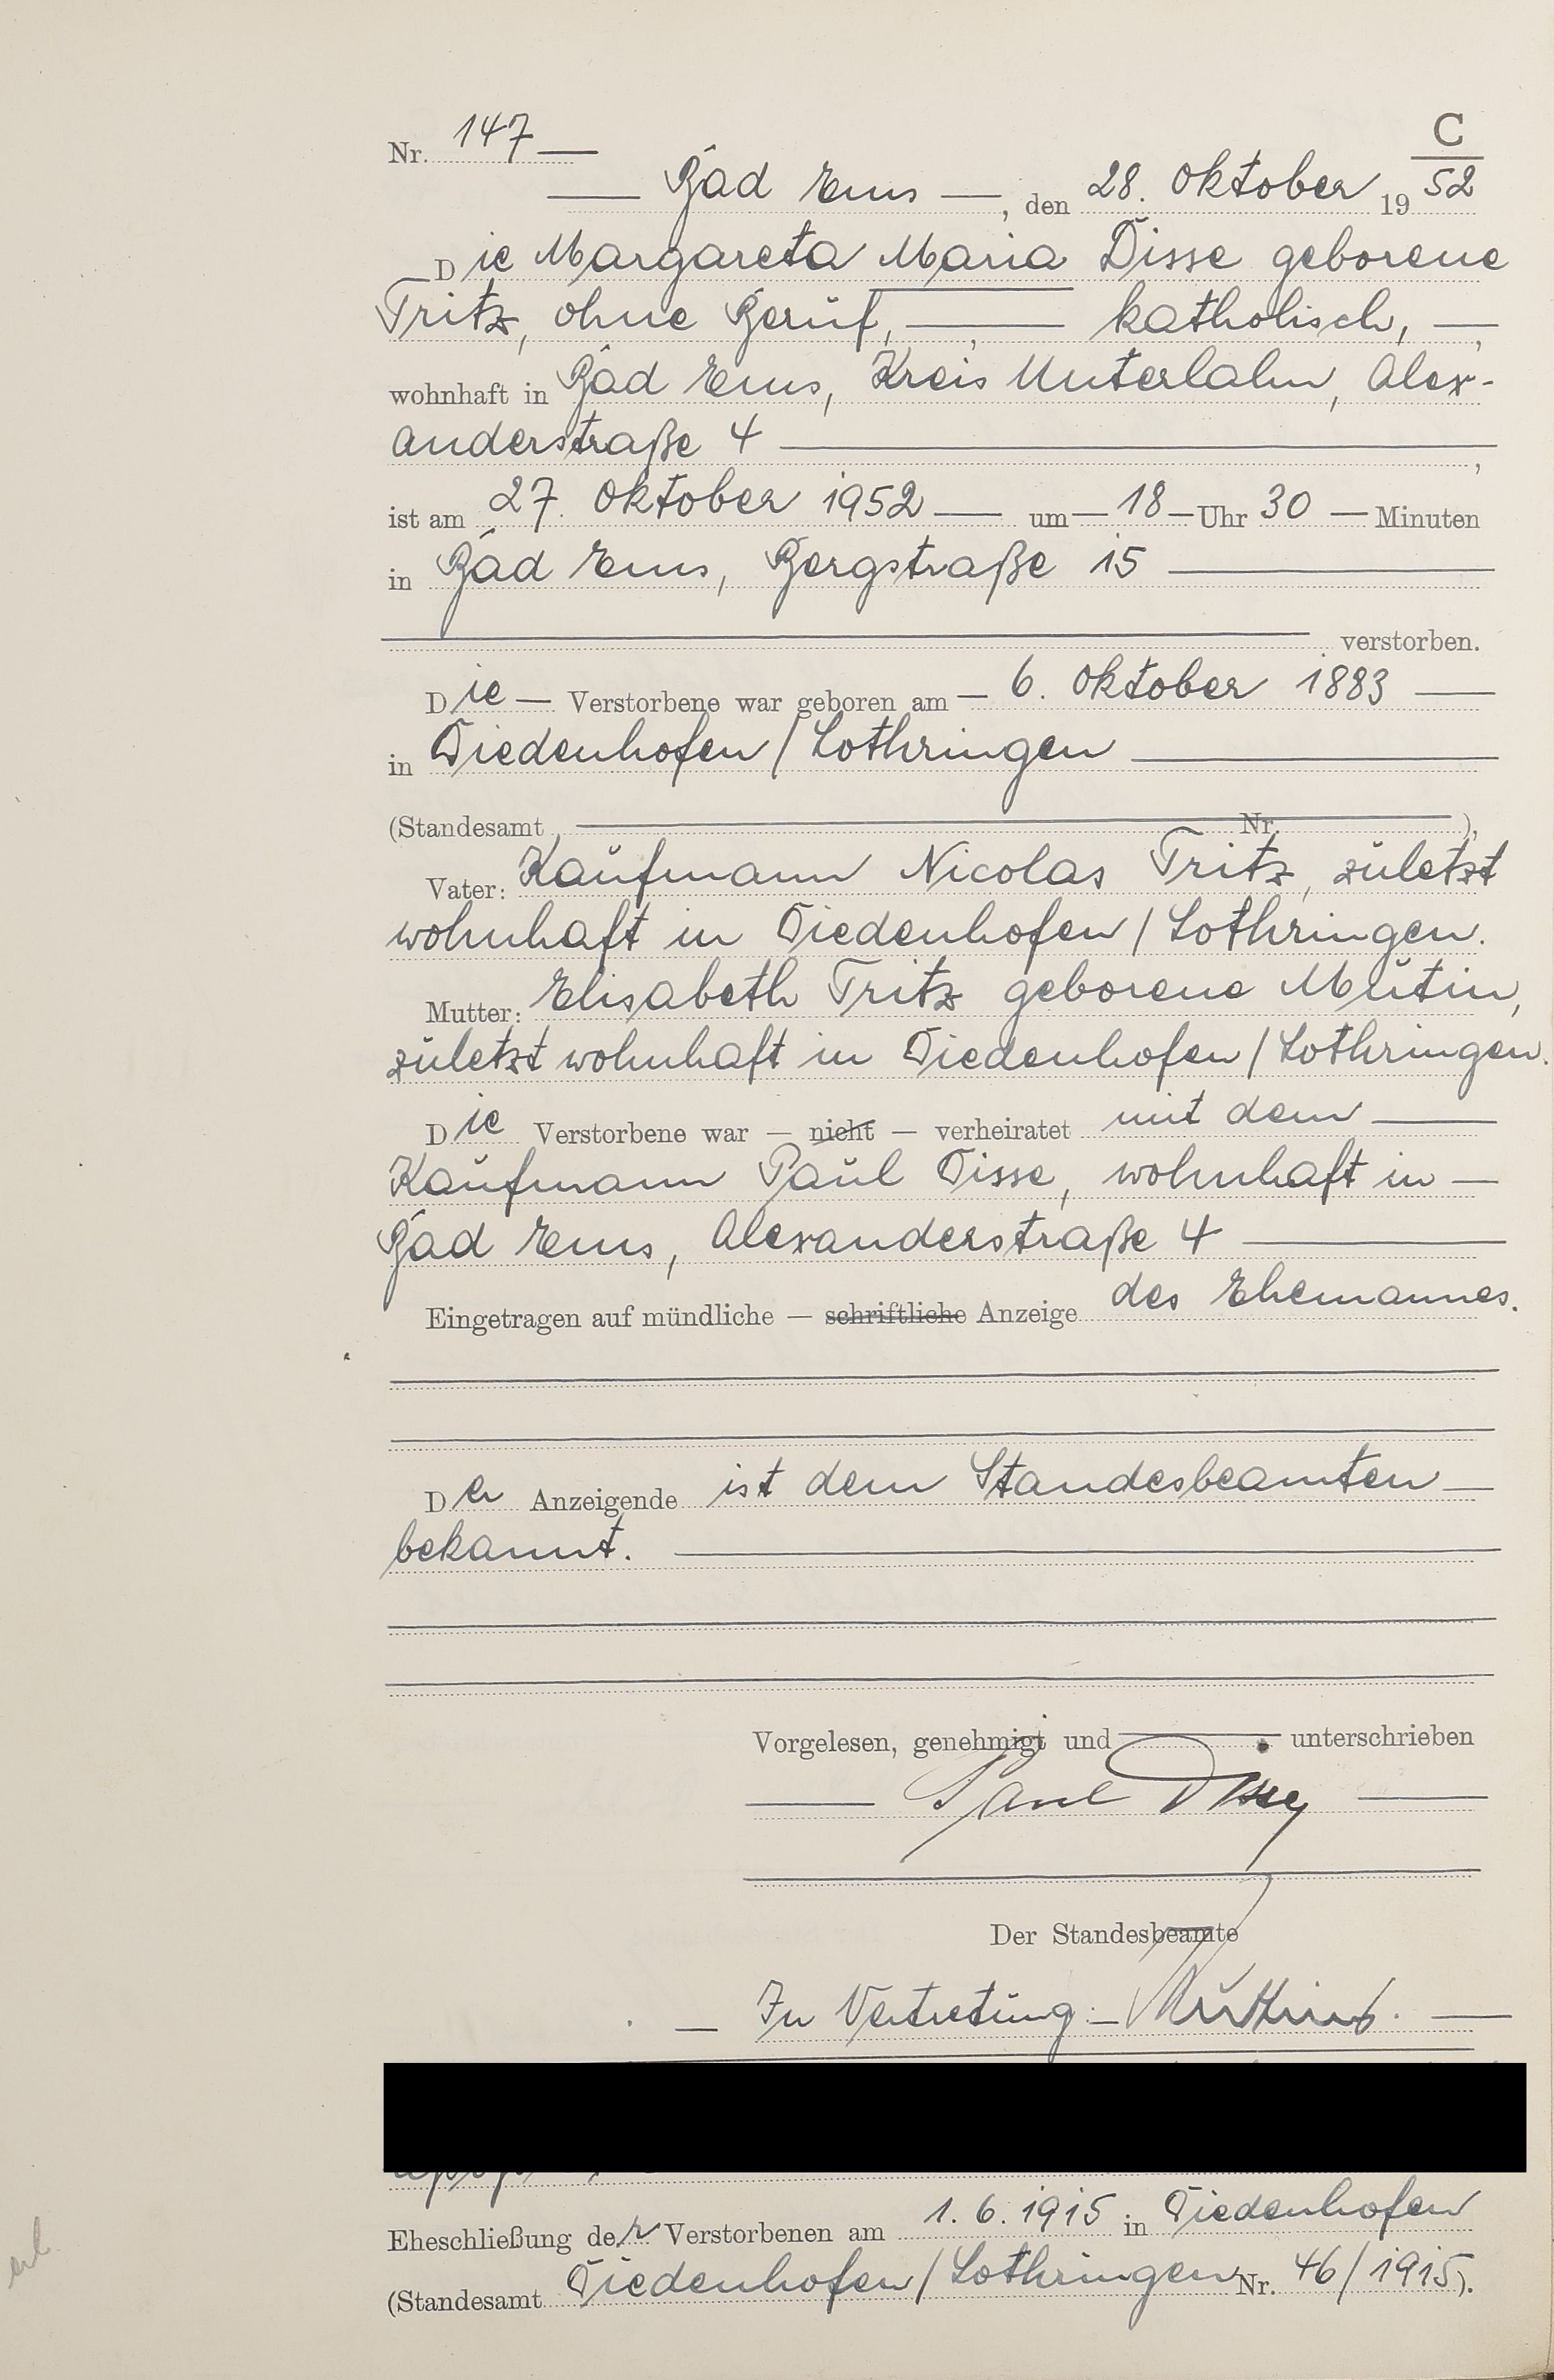 C
Nr. 147
Bad Ems, den 28. Oktober 1952
Die Margareta Maria Disse geborene
Tritz, ohne Beruf, katholisch,
wohnhaft in Bad Ems, Kreis Unterlahn, Alex-
anderstraße 4,
ist am 27. Oktober 1952 um 18 Uhr 30 Minuten
in Bad Ems, Bergstraße 15
verstorben.
Die Verstorbene war geboren am 6. Oktober 1883
in Diedenhofen/Lothringen
(Standesamt Nr. ),
Vater: Kaufmann Nicolas Tritz, zuletzt
wohnhaft in Diedenhofen/Lothringen.
Mutter: Elisabeth Tritz geborene Mutin,
zuletzt wohnhaft in Diedenhofen/Lothringen.
Die Verstorbene war — nicht — verheiratet mit dem
Kaufmann Paul Disse, wohnhaft in
Bad Ems, Alexanderstraße 4
Eingetragen auf mündliche — schriftliche Anzeige des Ehemannes.
Der Anzeigende ist dem Standesbeamten
bekannt.
Vorgelesen, genehmigt und unterschrieben
Paul Disse
Der Standesbeamte
In Vertretung:
Eheschließung der Verstorbenen am 1. 6. 1915 in Diedenhofen
(Standesamt Diedenhofen/Lothringen Nr. 46/1915).